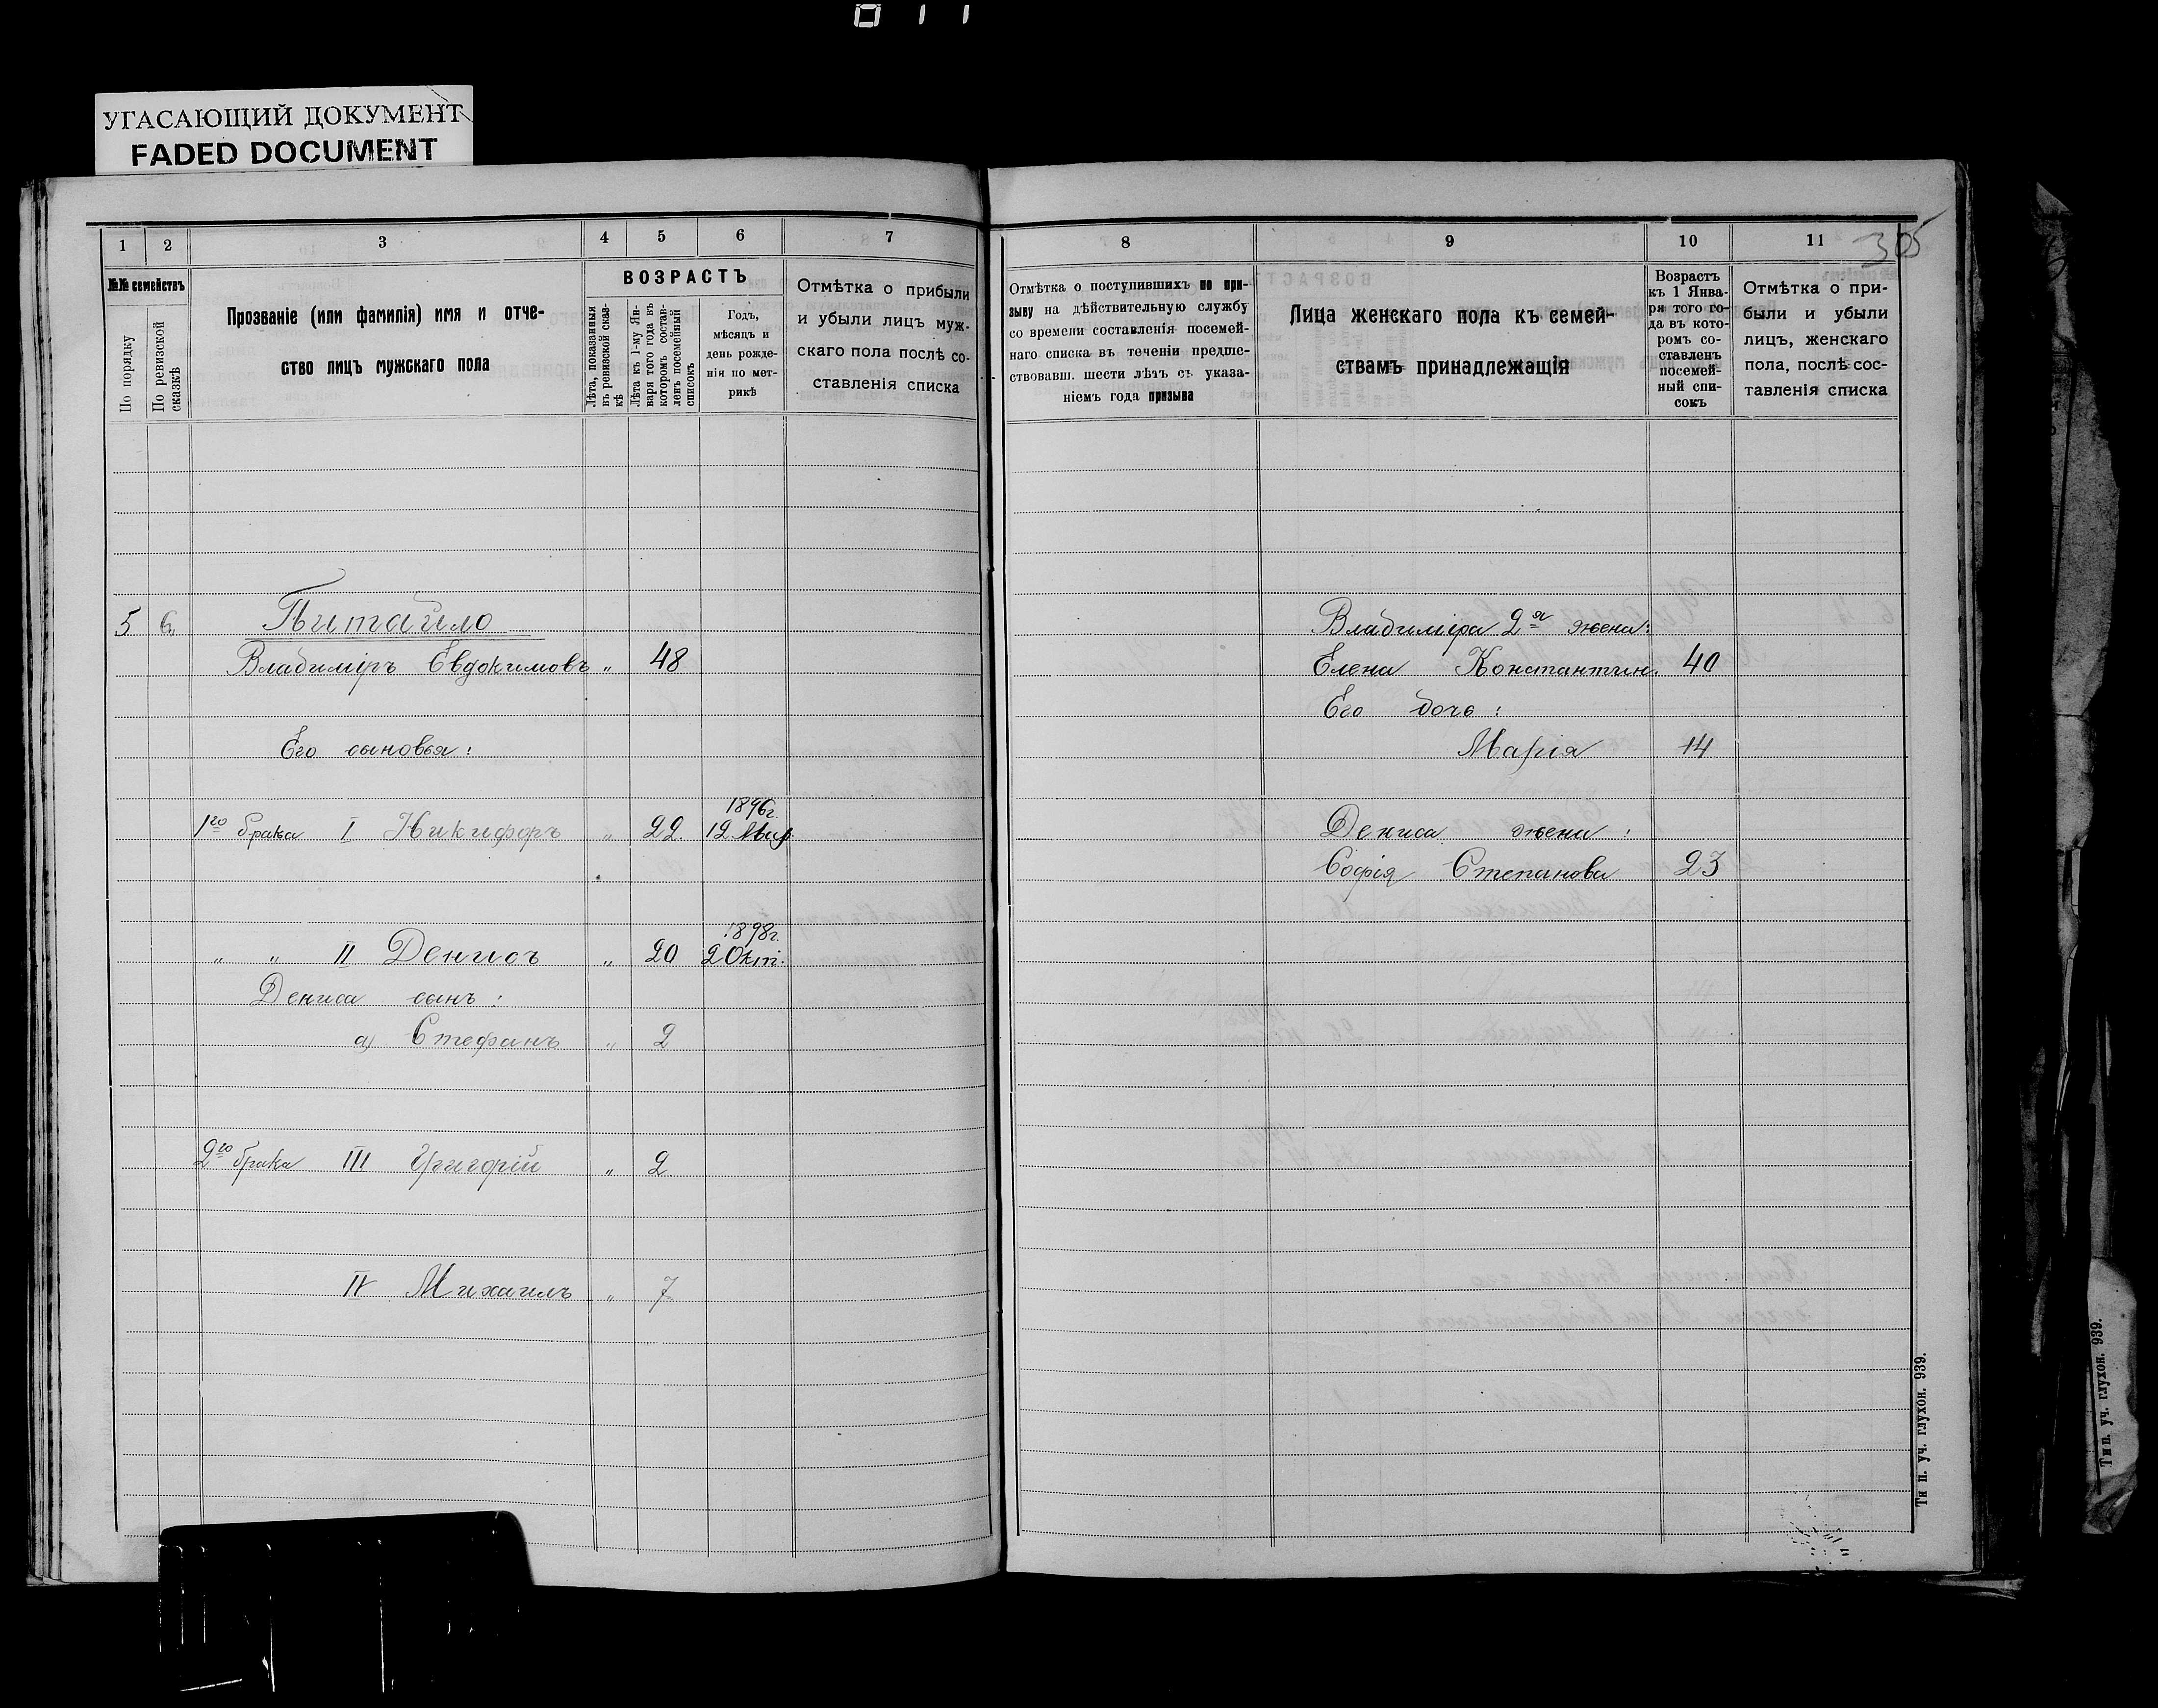 УГАСАЮЩИЙ ДОКУМЕНТ
FADED DOCUMENT
1 2 3 4 5 6 7
№№ семействъ
По порядку
По ревизской сказкѣ
Прозваніе (или фамилія) имя и отче-
ство лицъ мужскаго пола
ВОЗРАСТЪ
Лѣта, показанныя
въ ревизской сказ-
кѣ
Лѣта къ 1-му Ян-
варя того года въ
которомъ состав-
ленъ посемейный
списокъ
Годъ,
мѣсяцъ и
день рожде-
нія по мет-
рикѣ
Отмѣтка о прибыли
и убыли лицъ муж-
скаго пола послѣ со-
ставленія списка
5 6 Питайло
Владиміръ Евдокимовъ „ 48
Его сыновья:
1896г.
1го брака I Никифоръ „ 22 12 Мар
1898г.
„ „ II Денисъ „ 20 2 Окт.
Дениса сынъ:
а) Стефанъ „ 2
2го брака III Григорій „ 2
IV Михаилъ „ 7
8 9 10 11
305
Отмѣтка о поступившихъ по при-
зыву на дѣйствительную службу
со времени составленія посемей-
наго списка въ теченіи предше-
ствовавш. шести лѣтъ съ указа-
ніемъ года призыва
Лица женскаго пола къ семей-
ствамъ принадлежащія
Возрастъ
къ 1 Янва-
ря того го-
да въ кото-
ромъ со-
ставленъ
посемей-
ный спи-
сокъ
Отмѣтка о при-
были и убыли
лицъ, женскаго
пола, послѣ сос-
тавленія списка
Владиміра 2я жена:
Елена Константин. 40
Его дочь:
Марія 14
Дениса жена:
Софія Степанова 23
Тип. уч. глухон. 939.
Тип. уч. глухон. 939.